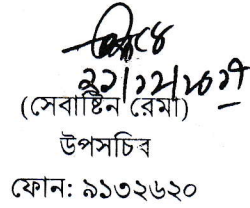 ২২/১২/২০১৭
(সেবাষ্টিন রেমা)
উপসচিব
ফোন: ৯১৩২৬২০